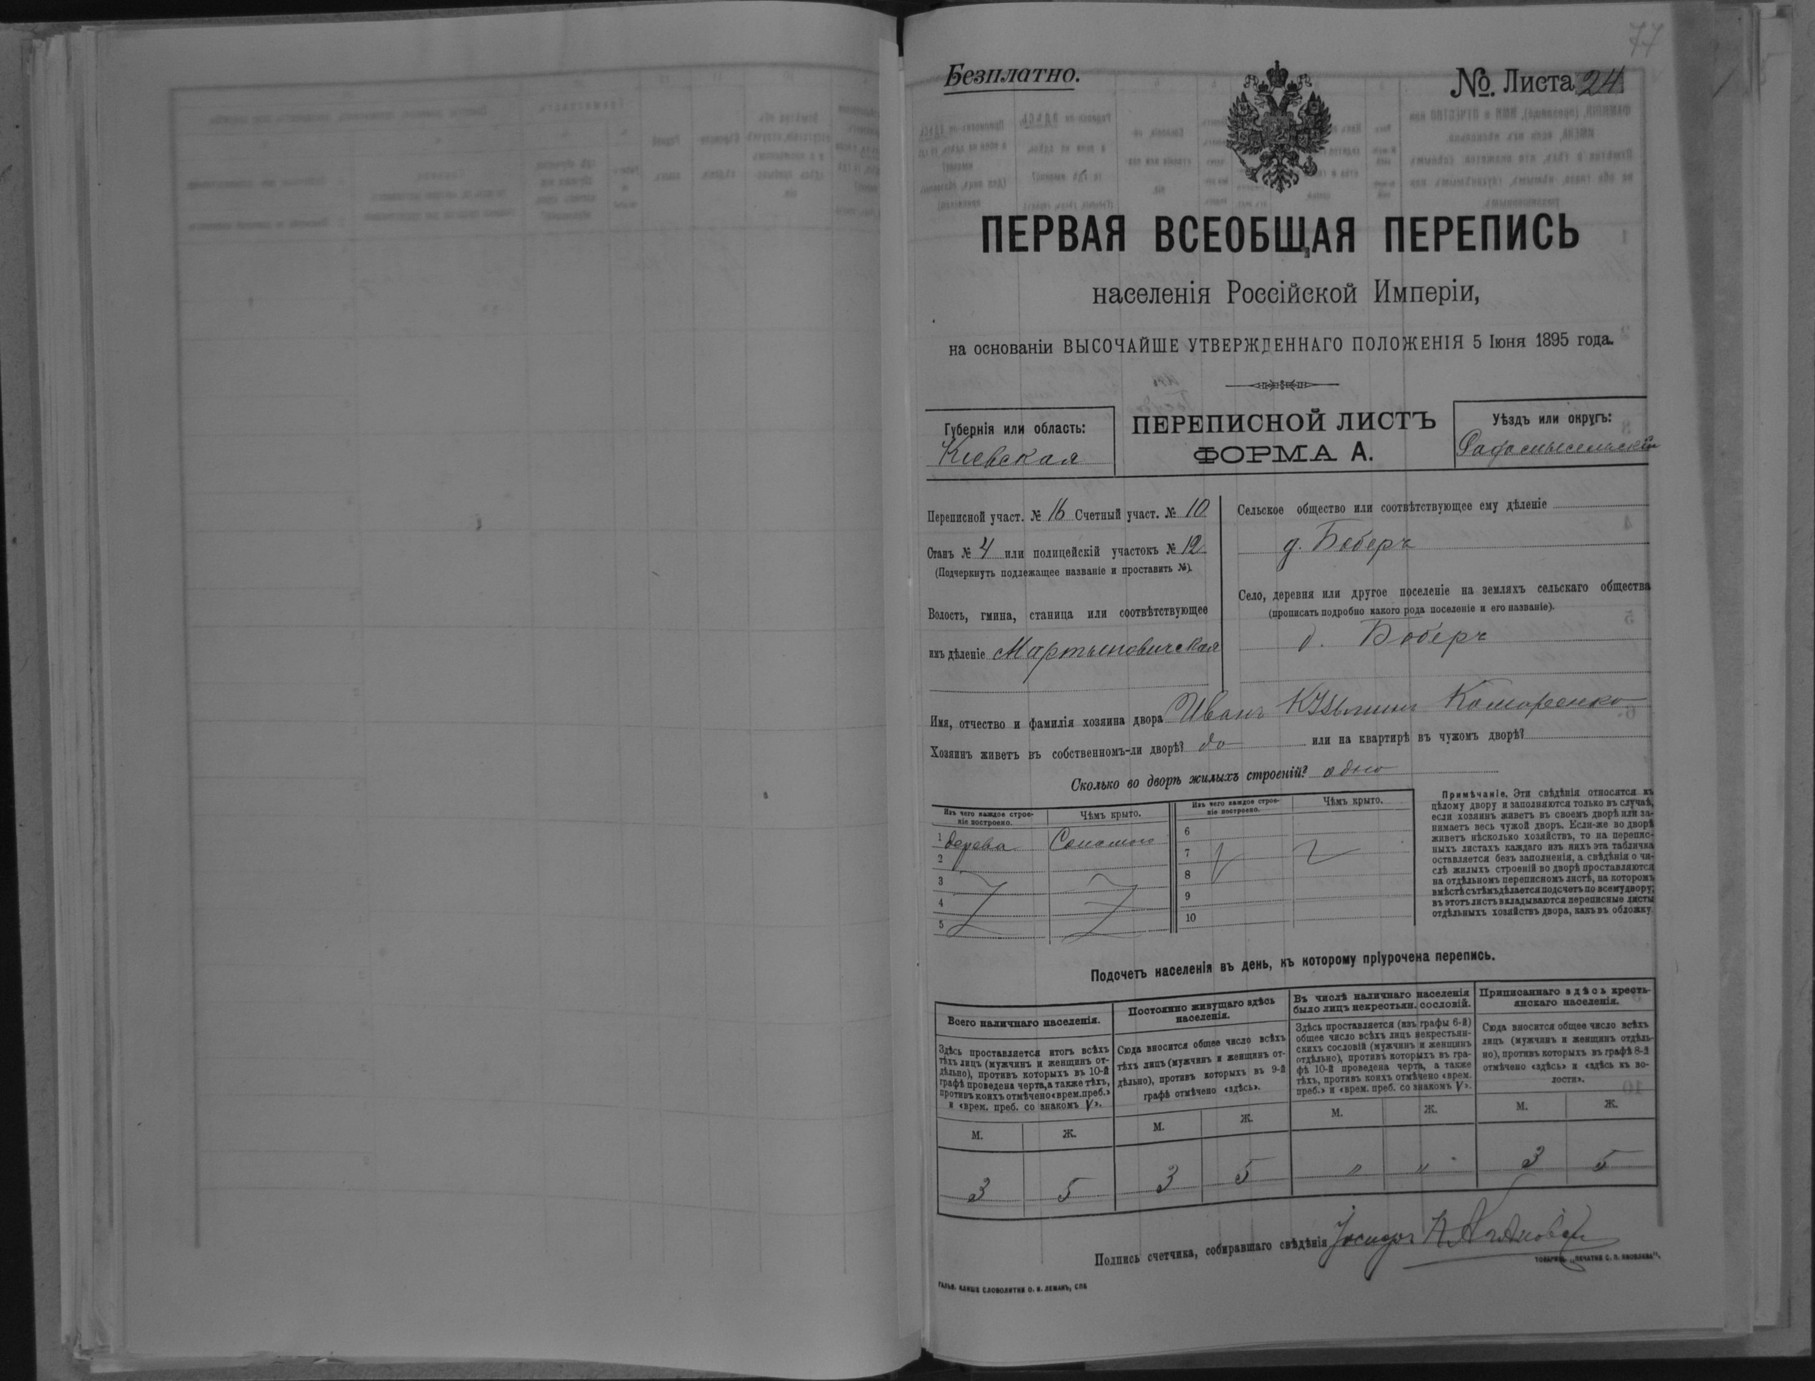 77
Безплатно.
№. Листа 24
ПЕРВАЯ ВСЕОБЩАЯ ПЕРЕПИСЬ
населенія Россійской Имперіи,
на основаніи ВЫСОЧАЙШЕ УТВЕРЖДЕННАГО ПОЛОЖЕНІЯ 5 Іюня 1895 года.
Губернія или область:
Кіевская
ПЕРЕПИСНОЙ ЛИСТЪ
ФОРМА А.
Уѣздъ или округъ:
Переписной участ. № 16 Счетный участ. № 10
Станъ № 4 или полицейскій участокъ № 12
(Подчеркнуть подлежащее названіе и проставить №).
Волость, гмина, станица или соотвѣтствующее
имъ дѣленіе Мартыновичская
Сельское общество или соотвѣтствующее ему дѣленіе
д. Боберъ
Село, деревня или другое поселеніе на земляхъ сельскаго общества
(прописать подробно какого рода поселеніе и его названіе).
д. Боберъ
Имя, отчество и фамилія хозяина двора Иванъ Кузьминъ Комаренко
Хозяинъ живетъ въ собственномъ-ли дворѣ? да или на квартирѣ въ чужомъ дворѣ?
Сколько во дворѣ жилыхъ строеній? одно
Изъ чего каждое строе-
ніе построено.
Чѣмъ крыто.
1 дерева Соломою
2
3
4
5
Изъ чего каждое строе-
ніе построено.
Чѣмъ крыто.
6
7
8
9
10
Примѣчаніе. Эти свѣдѣнія относятся къ
цѣлому двору и заполняются только въ случаѣ,
если хозяинъ живетъ въ своемъ дворѣ или за-
нимаетъ весь чужой дворъ. Если-же во дворѣ
живетъ нѣсколько хозяйствъ, то на перепис-
ныхъ листахъ каждаго изъ нихъ эта табличка
оставляется безъ заполненія, а свѣдѣнія о чи-
слѣ жилыхъ строеній во дворѣ проставляются
на отдѣльномъ переписномъ листѣ, на которомъ
вмѣстѣ съ тѣмъ дѣлается подсчетъ по всему двору;
въ этотъ листъ вкладываются переписные листы
отдѣльныхъ хозяйствъ двора, какъ въ обложку.
Подсчетъ населенія въ день, къ которому пріурочена перепись.
Всего наличнаго населенія.
Здѣсь проставляется итогъ всѣхъ
тѣхъ лицъ (мужчинъ и женщинъ от-
дѣльно), противъ которыхъ въ 10-й
графѣ проведена черта, а также тѣхъ,
противъ коихъ отмѣчено «врем. преб.»
и «врем. преб. со знакомъ V».
М. Ж.
3 5
Постоянно живущаго здѣсь
населенія.
Сюда вносится общее число всѣхъ
тѣхъ лицъ (мужчинъ и женщинъ от-
дѣльно), противъ которыхъ въ 9-й
графѣ отмѣчено «здѣсь».
М. Ж.
3 5
Въ числѣ наличнаго населенія
было лицъ некрестьян. сословій.
Здѣсь проставляется (изъ графы 6-й)
общее число всѣхъ лицъ некрестьян-
скихъ сословій (мужчинъ и женщинъ
отдѣльно), противъ которыхъ въ гра-
фѣ 10-й проведена черта, а также
тѣхъ, противъ коихъ отмѣчено «врем.
преб.» и «врем. преб. со знакомъ V».
М. Ж.
" "
Приписаннаго здѣсь кресть-
янскаго населенія.
Сюда вносится общее число всѣхъ
лицъ (мужчинъ и женщинъ отдѣль-
но), противъ которыхъ въ графѣ 8-й
отмѣчено «здѣсь» и «здѣсь въ во-
лости».
М. Ж.
3 5
Подпись счетчика, собиравшаго свѣдѣнія
ГАЛЬВ. КЛИШЕ СЛОВОЛИТНИ О. И. ЛЕМАНЪ, СПБ
ТОВАРИЩ. „ПЕЧАТНЯ С. П. ЯКОВЛЕВА".